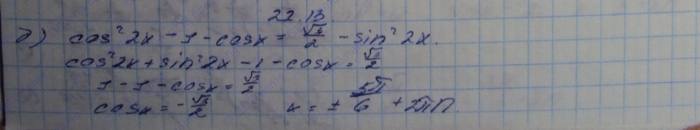 22.13
б) cos² 2x - 1 - cosx = √3/2 - sin² 2x.
cos² 2x + sin² 2x - 1 - cosx = √3/2
1 - 1 - cosx = √3/2
cosx = -√3/2 x = ± 5π/6 + 2πn